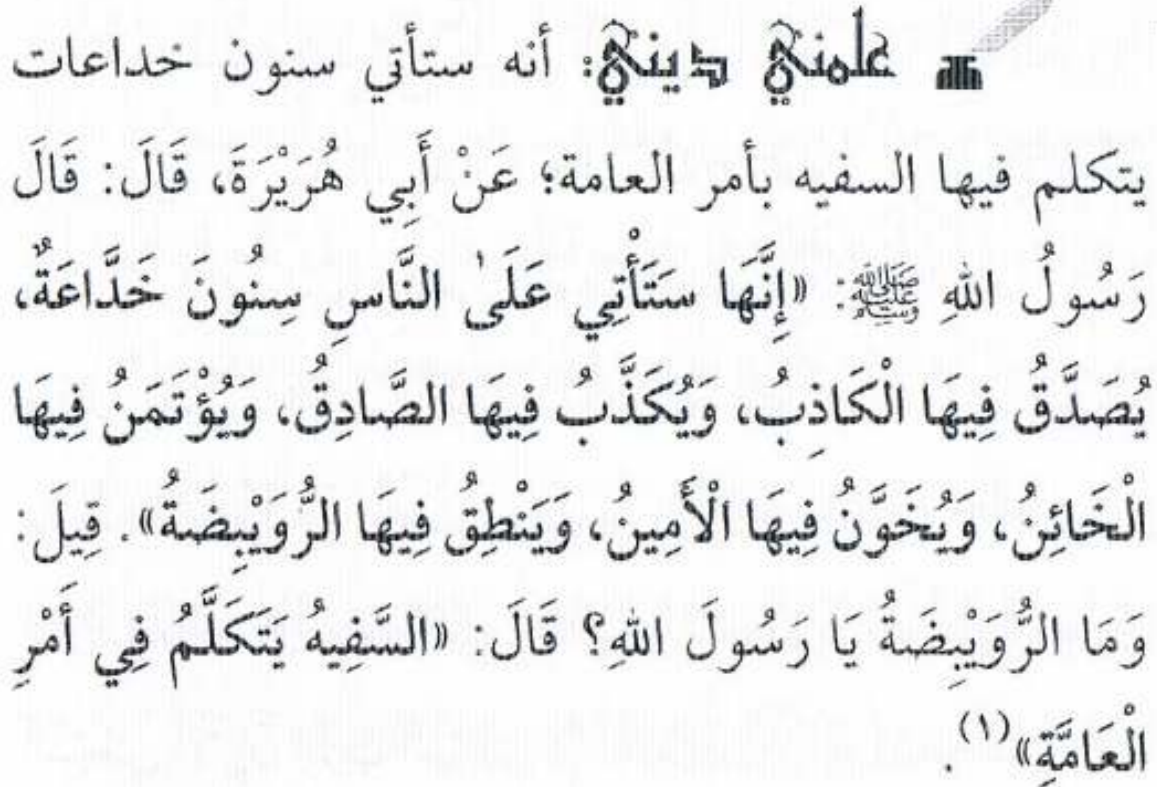 علمني ديني: أنه ستأتي سنون خداعات
يتكلم فيها السفيه بأمر العامة؛ عَنْ أَبِي هُرَيْرَةَ، قَالَ: قَالَ
رَسُولُ اللهِ ﷺ: «إِنَّهَا سَتَأْتِي عَلَى النَّاسِ سِنُونَ خَدَّاعَةٌ،
يُصَدَّقُ فِيهَا الْكَاذِبُ، وَيُكَذَّبُ فِيهَا الصَّادِقُ، وَيُؤْتَمَنُ فِيهَا
الْخَائِنُ، وَيُخَوَّنُ فِيهَا الْأَمِينُ، وَيَنْطِقُ فِيهَا الرُّوَيْبِضَةُ». قِيلَ:
وَمَا الرُّوَيْبِضَةُ يَا رَسُولَ اللهِ؟ قَالَ: «السَّفِيهُ يَتَكَلَّمُ فِي أَمْرِ
الْعَامَّةِ»(١).